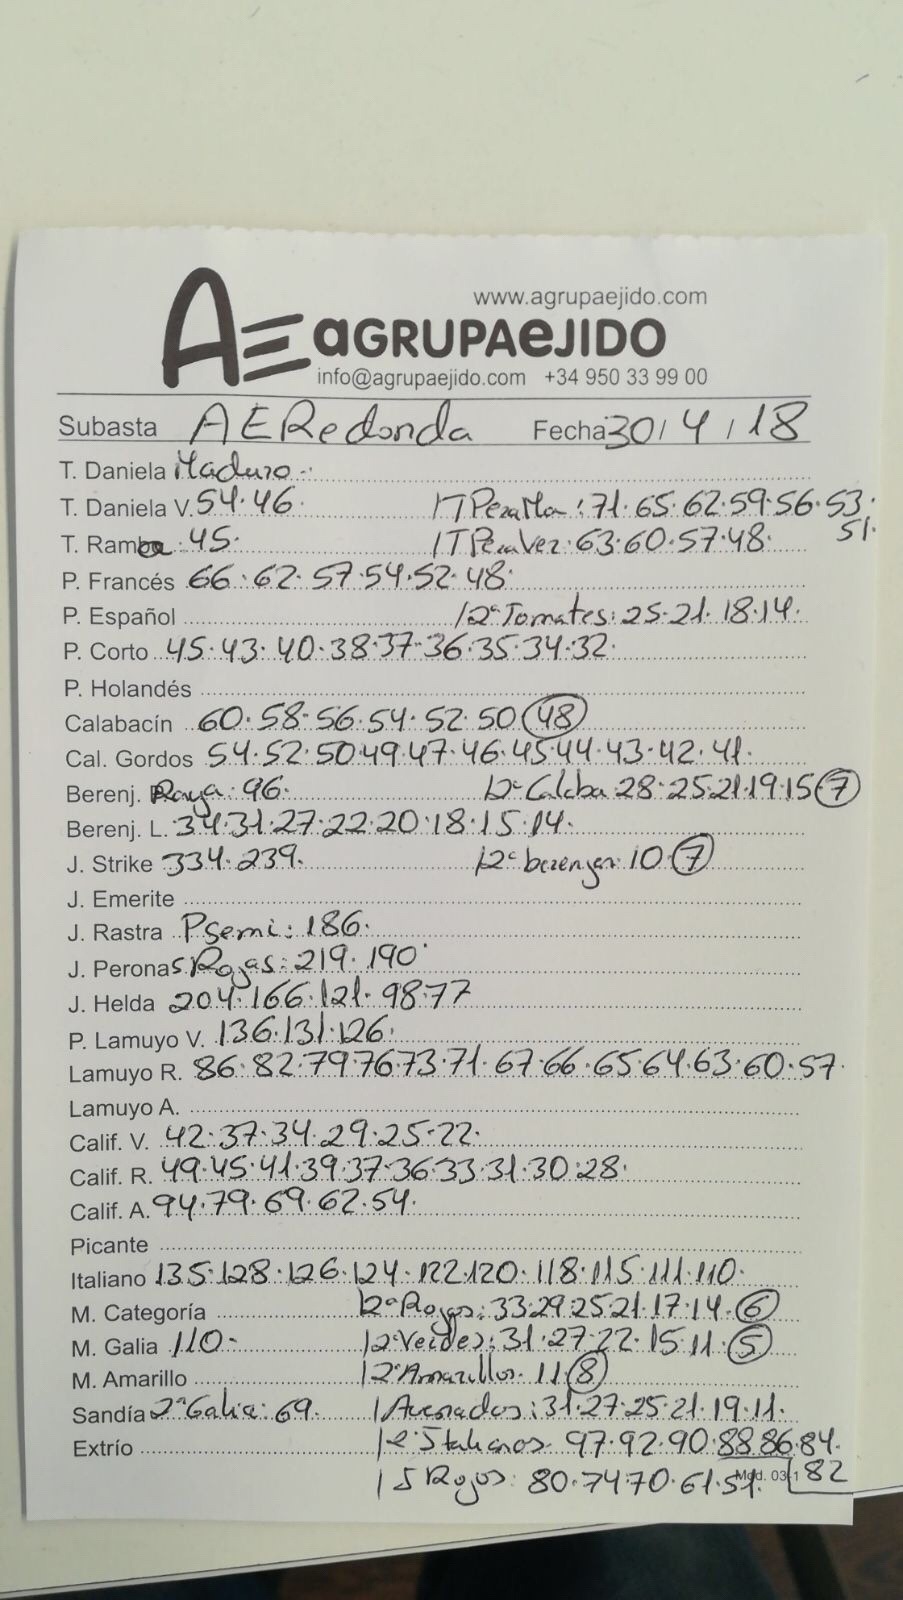 www.agrupaejido.com
AE aGRUPAeJIDO
info@agrupaejido.com +34 950 33 99 00
Subasta AERedonda Fecha 30/4/18
T. Daniela Maduro.
T. Daniela V. 54.46 /TPeraMa: 71.65.62.59.56.53.
51.
T. Ramba 45. /TPeraVer: 63.60.57.48.
P. Francés 66.62.57.54.52.48.
P. Español /2ªTomates: 25.21.18.14.
P. Corto 45.43.40.38.37.36.35.34.32.
P. Holandés
Calabacín 60.58.56.54.52.50 48
Cal. Gordos 54.52.50.49.47.46.45.44.43.42.41.
Berenj. Raya: 96. /2ªCalaba: 28.25.21.19.15 7
Berenj. L. 34.31.27.22.20.18.15.14.
J. Strike 334.239. /2ªberenjen: 10.7
J. Emerite
J. Rastra Psemi: 186.
J. Peronas Rojas: 219.190
J. Helda 204.166.121.98.77
P. Lamuyo V. 136.131.126.
Lamuyo R. 86.82.79.76.73.71.67.66.65.64.63.60.57.
Lamuyo A.
Calif. V. 42.37.34.29.25.22.
Calif. R. 49.45.41.39.37.36.33.31.30.28.
Calif. A. 94.79.69.62.54.
Picante
Italiano 135.128.126.124.122.120.118.115.111.110.
M. Categoría /2ªRojos: 33.29.25.21.17.14.6
M. Galia 110. /2ªVerdes: 31.27.22.15.11.5
M. Amarillo /2ªAmarillos. 11 8
Sandía 2ªGalia: 69. /Asurados: 31.27.25.21.19.11.
Extrío /2ªItalianos. 97.92.90.88.86.84.
/I Rojos: 80.74.70.61.51. Mod. 03-1 82